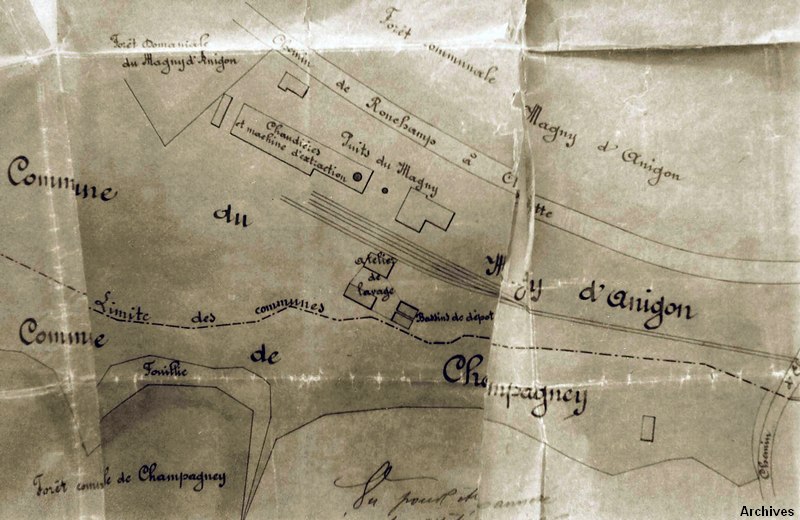 Forêt Domaniale
du Magny d'Anigon
Forêt communale
Magny d'Anigon
Chemin de Ronchamp à
Chaudières
et machine d'extraction
Puits du Magny
Commune
du
d'Anigon
atelier
de
lavage
Bassins de dépot
Limite des communes
Commune
de
Champagney
Fouillie
Forêt com.le de Champagney
Chemin
Vu pour
Archives